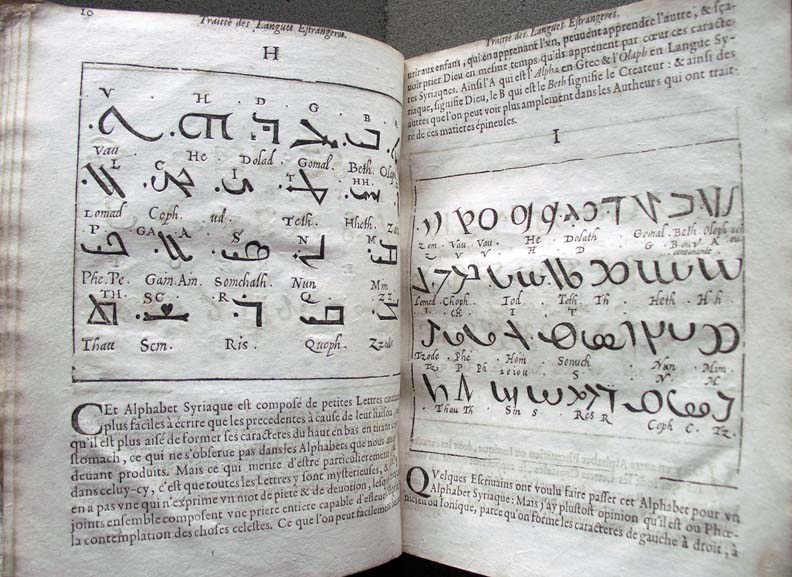 10
Traitté des Langues Estrangeres.
H
V H D G B
Vau He Dolad Gomal. Beth. Olap
L C I T HH.
Lomad Coph. ud. Teth. Hheth. Zai
P GA A S N M
Phe.Pe. Gam.Am. Somchath. Nun Mm
TH. SC. R Q ZZ
Thau Scm. Ris. Quoph. Zzode
CEt Alphabet Syriaque est composé de petites Lettres
plus faciles à écrire que les precedentes à cause de leur liaison,
qu'il est plus aisé de former ses caracteres du haut en bas en tirant
stomach, ce qui ne s'obserue pas dans les Alphabets que nous
deuant produits. Mais ce qui merite d'estre particulierement
dans celuy-cy, c'est que toutes les Lettres y sont mysterieuses, &
en a pas vne qui n'exprime vn mot de pieté & de deuotion, lesquels
joints ensemble composent vne priere entiere capable d'esleuer
la contemplation des choses celestes. Ce que l'on peut facilement
Traitté des Langues Estrangeres.
urir aux enfans, qui en apprenant l'vn, peuuent apprendre l'autre, & sça-
uoir prier Dieu en mesme temps qu'ils apprenent par cœur ces caracte-
res Syriaques. Ainsi l'A qui est l'Alpha en Grec & l'Olaph en Langue Sy-
riaque, signifie Dieu, le B qui est le Beth signifie le Createur : & ainsi des
autres que l'on peut voir plus amplement dans les Autheurs qui ont trait-
té de ces matieres épineuses.
I
Zen Vau Vau He Dolath Gomal Beth Oleph
V V H D G B ou V A ou
Lomed Choph. Iod Teth Th Heth Hh
L Ch I T
Tzode Phe Hom Somch Nun Mim
Tz P Ph S N M
Thau Th Sm S Res R Coph C. Tz.
QVelques Escriuains ont voulu faire passer cet Alphabet pour vn
Alphabet Syriaque : Mais j'ay plustost opinion qu'il est ou Phœ-
nicien ou Ionique, parce qu'on forme les caracteres de gauche à droit, à